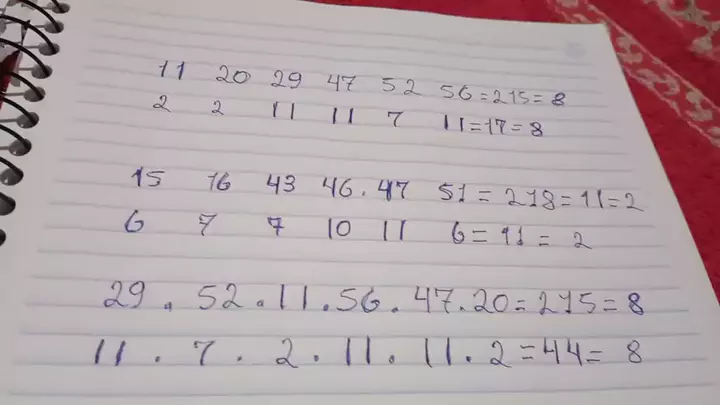 11 20 29 47 52 56 = 215 = 8
2 2 11 11 7 11 = 17 = 8
15 16 43 46 . 47 51 = 218 = 11 = 2
6 7 7 10 11 6 = 11 = 2
29 . 52 . 11 . 56 . 47 . 20 = 215 = 8
11 . 7 . 2 . 11 . 11 . 2 = 44 = 8